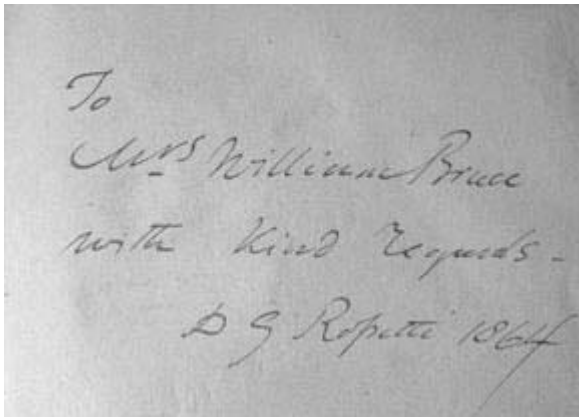 To
Mrs William Bruce
with kind regards -
D G Rossetti 1864